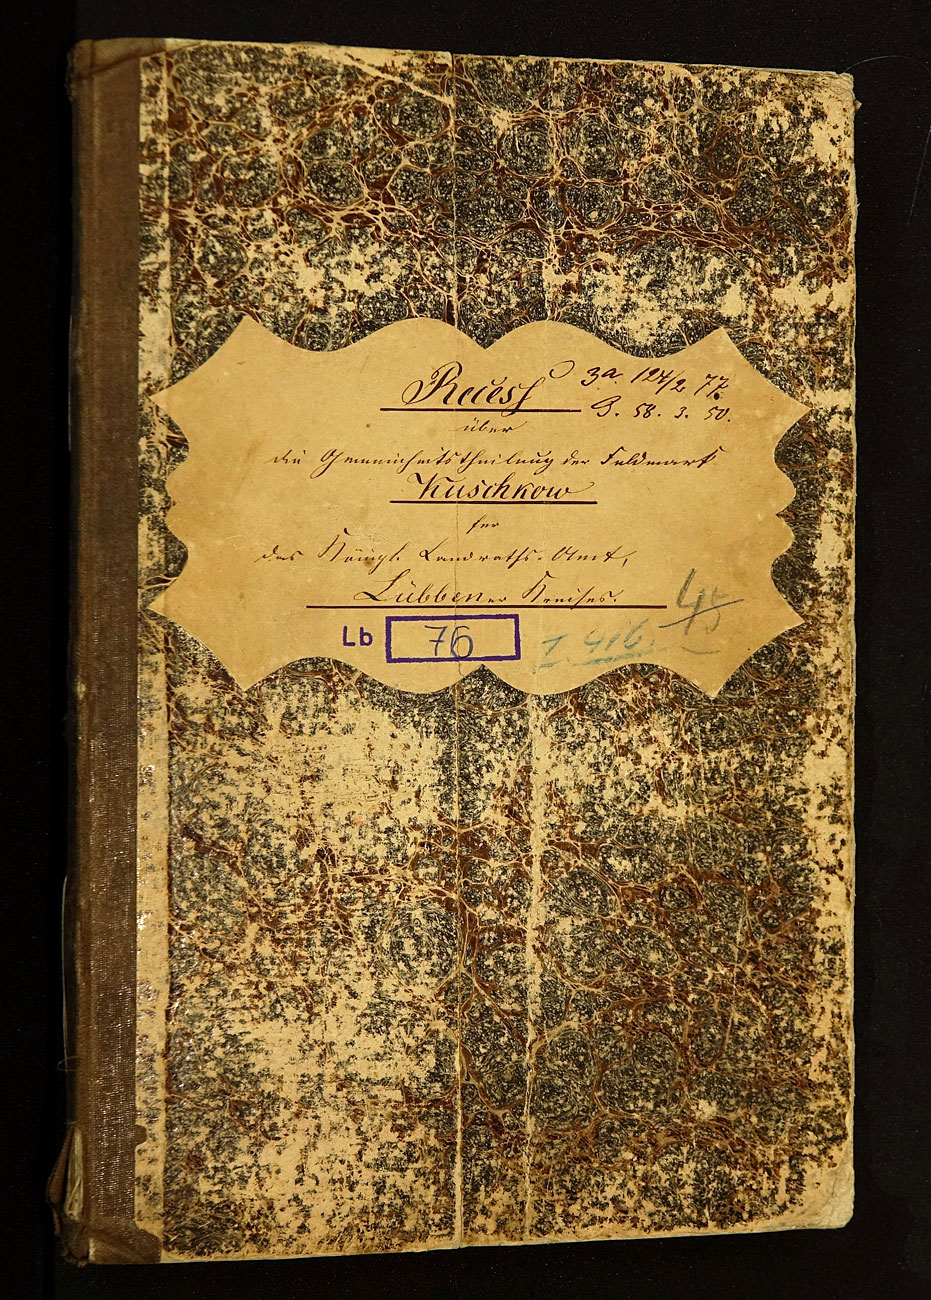 Recess
3a. 124/2. 77.
G. 58. 3. 50.
über
die Gemeinheitstheilung der Feldmark
Kuschkow
für
das Königl. Landraths-Amt,
Lübbener Kreises.
Lb 76
I. 416.